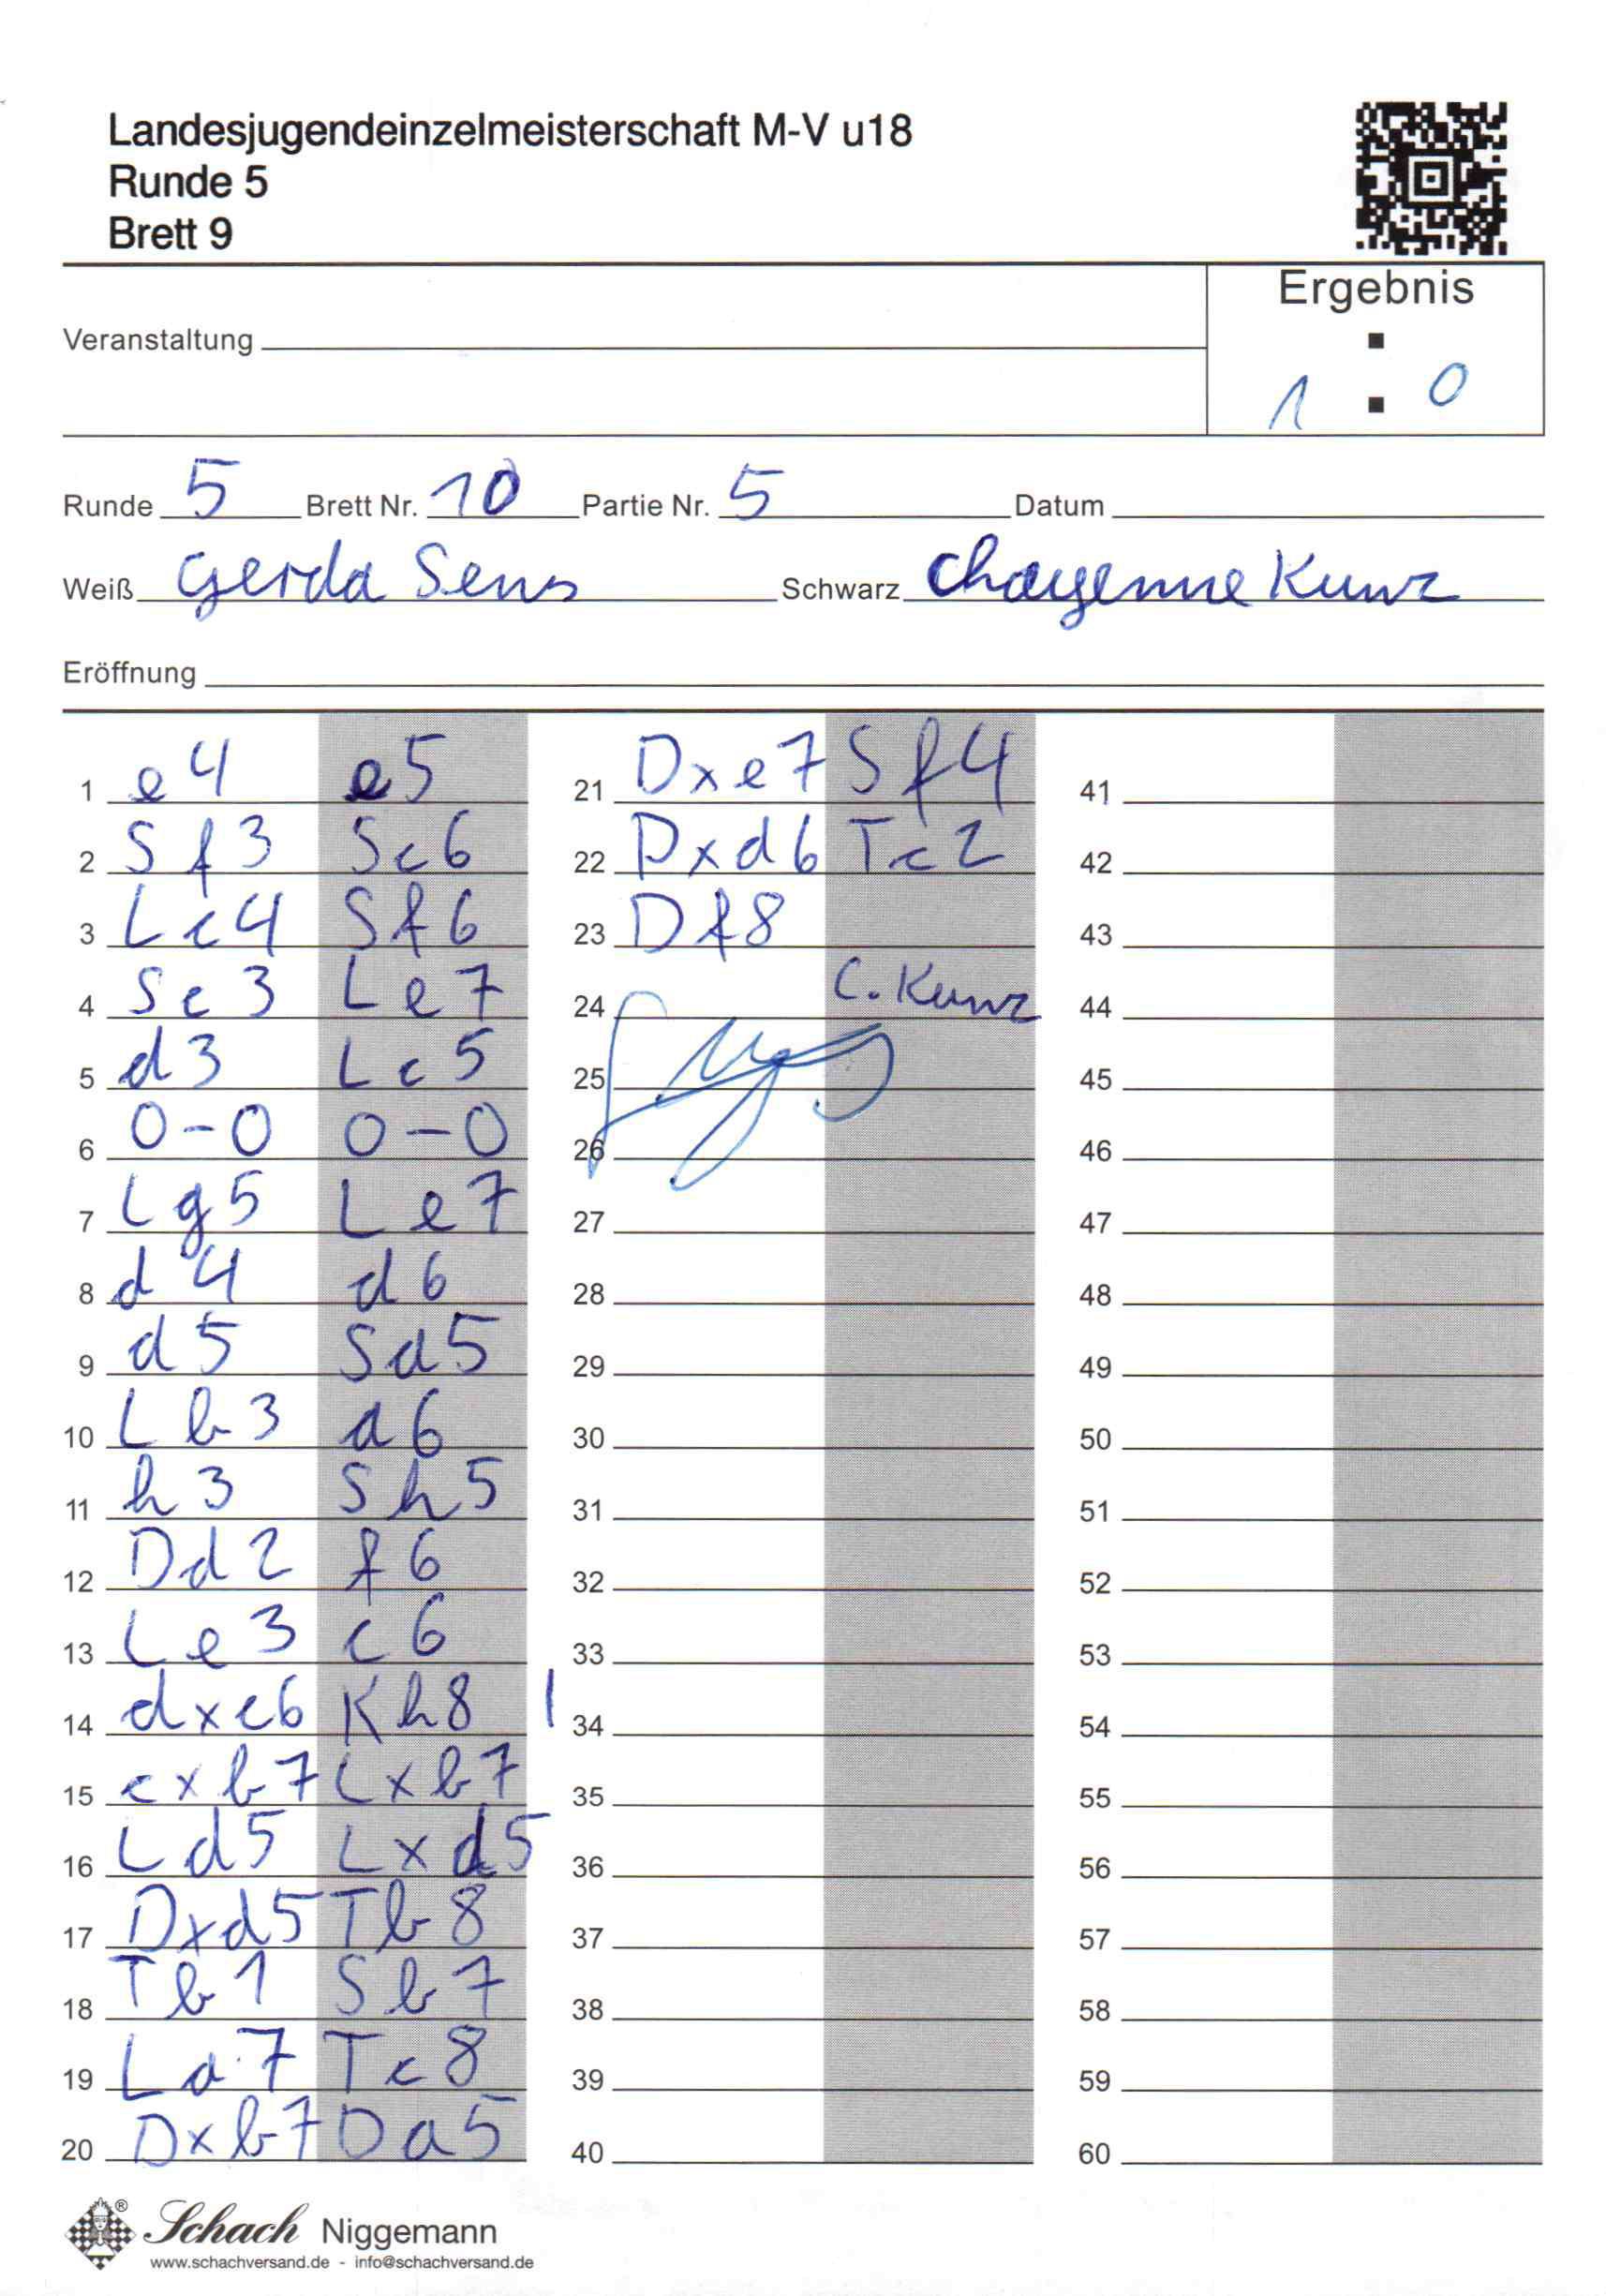 Landesjugendeinzelmeisterschaft M-V u18
Runde 5
Brett 9
Ergebnis
Veranstaltung
1 : 0
Runde 5 Brett Nr. 10 Partie Nr. 5 Datum
Weiß Gerda Sens Schwarz Chayenne Kunz
Eröffnung
1 e4 e5
2 Sf3 Sc6
3 Lc4 Sf6
4 Sc3 Le7
5 d3 Lc5
6 0-0 0-0
7 Lg5 Le7
8 d4 d6
9 d5 Sa5
10 Lb3 a6
11 h3 Sh5
12 Dd2 f6
13 Le3 c6
14 dxc6 Kh8
15 cxb7 Lxb7
16 Ld5 Lxd5
17 Dxd5 Tb8
18 Tb1 Sb7
19 La7 Tc8
20 Dxb7 Da5
21 Dxe7 Sf4
22 Dxd6 Tc2
23 Df8
24 C. Kunz
25
26
27
28
29
30
31
32
33
34
35
36
37
38
39
40
41
42
43
44
45
46
47
48
49
50
51
52
53
54
55
56
57
58
59
60
Schach Niggemann
www.schachversand.de - info@schachversand.de